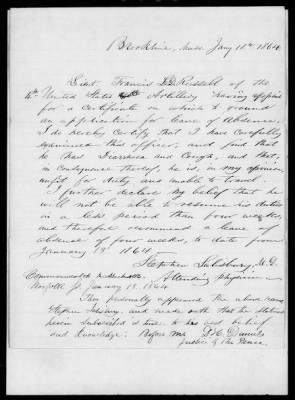 Brookline, Mass. Jany 18th 1864.
Lieut. Francis L. D. Russell of the
4th United States Artillery having applied
for a certificate on which to ground
an application for leave of Absence,
I do hereby certify that I have carefully
examined this officer, and find that
he has Diarrhœa and Cough, and that,
in consequence thereof, he is, in my opinion,
unfit for duty and unable to travel.
I further declare my belief that he
will not be able to resume his duties
in a less period than four weeks,
and therefore recommend a leave of
absence of four weeks, to date from
January 19 1864.
Stephen Salisbury, M.D.
Attending Physician
Commonwealth of Massachusetts
Norfolk ss. January 18. 1864
Then personally appeared the above named
Stephen Salisbury and made oath that the statement
subscribed is true to his best belief
and knowledge: Before me
Justice of the Peace.